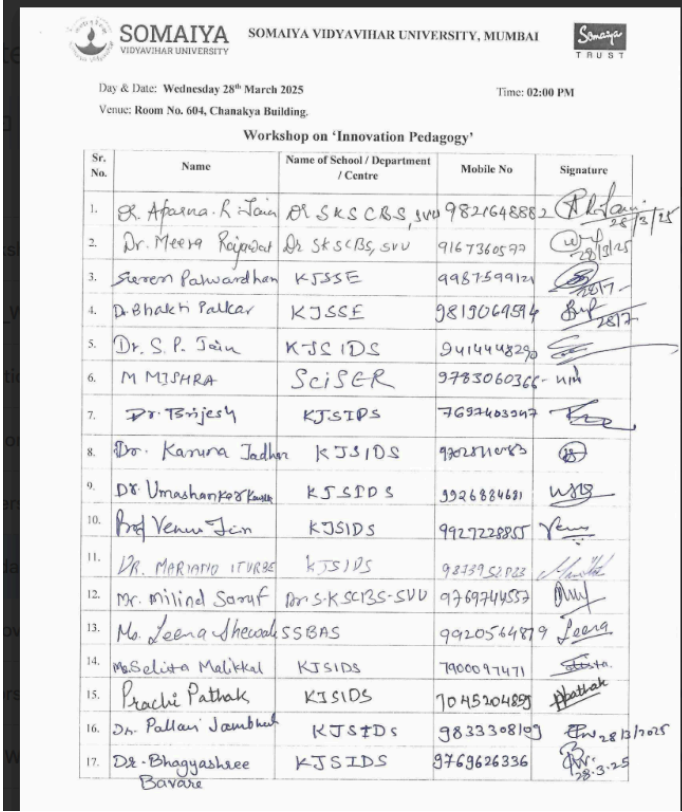 SOMAIYA
VIDYAVIHAR UNIVERSITY
SOMAIYA VIDYAVIHAR UNIVERSITY, MUMBAI
Somaiya
TRUST
Day & Date: Wednesday 28th March 2025 Time: 02:00 PM
Venue: Room No. 604, Chanakya Building.
Workshop on ‘Innovation Pedagogy’
Sr. No. Name Name of School / Department / Centre Mobile No Signature
1. Dr. Aparna. R Jain Dr SKSCBS, SVU 9821648882 28/3/25
2. Dr. Meera Rajawat Dr SKSCBS, SVU 9167360597 28/3/25
3. Suren Patwardhan KJSSE 28/7
4. Dr Bhakti Palkar KJSSE 9819069594 28/7
5. Dr. S. P. Jain KJSIDS 9414448290
6. M MISHRA SciSER 9783060366
7. Dr. Brijesh KJSIDS
8. Dr. Karuna Jadhav KJSIDS
9. Dr Umashanker KJSIDS
10. Prof Venus Jain KJSIDS 9927228855 Venus
11. DR. MARIANO ITURBE KJSIDS
12. Mr. Milind Saraf Dr S.K SCBS-SVU 9769744557
13. Ms. Leena SSBAS 9920564879 Leena
14. Ms. Malikkal KJSIDS 7900097471
15. Prachi Pathak KJSIDS 7045204895 PPathak
16. Dr. Pallavi KJSIDs 28/3/2025
17. Dr. Bhagyashree KJSIDS 9769626336
Bavare 28.3.25